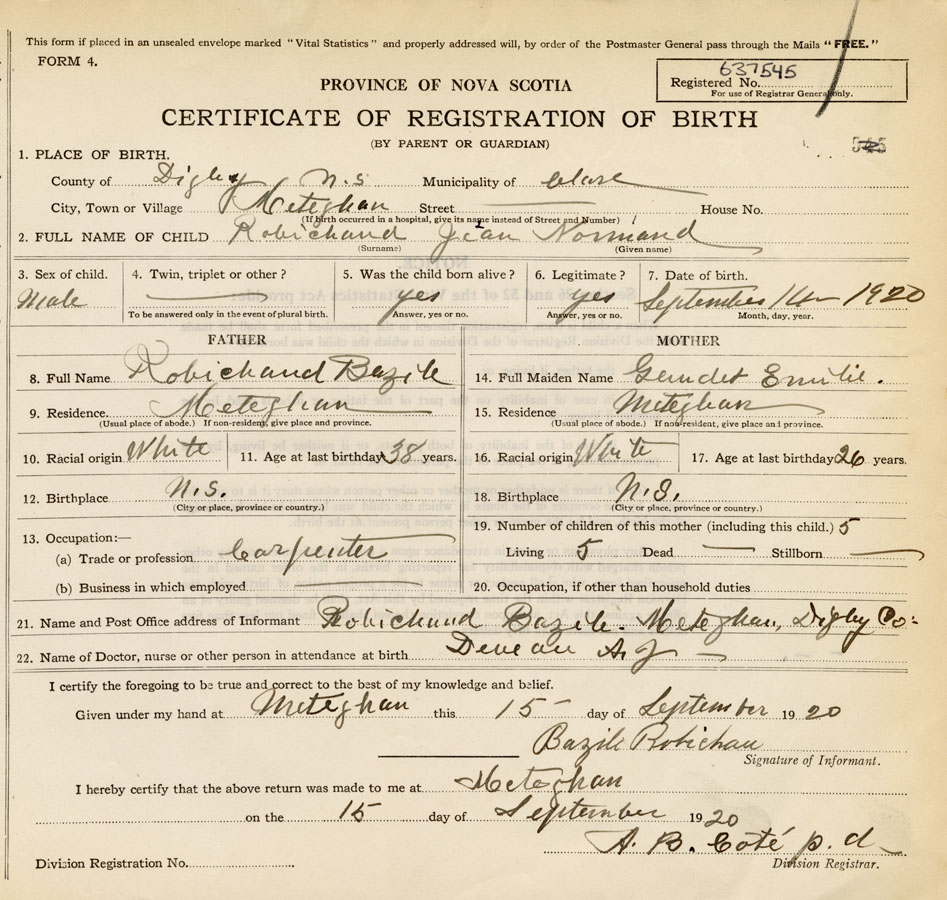 This form if placed in an unsealed envelope marked "Vital Statistics" and properly addressed will, by order of the Postmaster General pass through the Mails "FREE."
FORM 4.
637545
Registered No.
For use of Registrar General only.
PROVINCE OF NOVA SCOTIA
CERTIFICATE OF REGISTRATION OF BIRTH
(BY PARENT OR GUARDIAN)
1. PLACE OF BIRTH.
County of Digby N.S Municipality of Clare
City, Town or Village Meteghan Street House No.
(If birth occurred in a hospital, give its name instead of Street and Number)
2. FULL NAME OF CHILD Robichaud Jean Normand
(Surname) (Given name)
3. Sex of child. 4. Twin, triplet or other? 5. Was the child born alive? 6. Legitimate? 7. Date of birth.
Male yes yes September 1920
To be answered only in the event of plural birth. Answer, yes or no. Answer, yes or no. Month, day, year.
FATHER MOTHER
8. Full Name Robichaud Bazile 14. Full Maiden Name Emilie.
9. Residence. Meteghan 15. Residence Meteghan
(Usual place of abode.) If non-resident, give place and province. (Usual place of abode.) If non-resident, give place and province.
10. Racial origin White 11. Age at last birthday 38 years. 16. Racial origin White 17. Age at last birthday 26 years.
12. Birthplace N.S. 18. Birthplace N.S.
(City or place, province or country.) (City or place, province or country.)
19. Number of children of this mother (including this child.) 5
13. Occupation:—
(a) Trade or profession Carpenter Living 5 Dead Stillborn
(b) Business in which employed 20. Occupation, if other than household duties
21. Name and Post Office address of Informant Robichaud Bazile. Meteghan, Digby Co.
22. Name of Doctor, nurse or other person in attendance at birth Deveau A. J
I certify the foregoing to be true and correct to the best of my knowledge and belief.
Given under my hand at Meteghan this 15 day of September 1920
Bazile Robichau
Signature of Informant.
I hereby certify that the above return was made to me at Meteghan
on the 15 day of September 1920
A. B. Coté p. d
Division Registration No. Division Registrar.